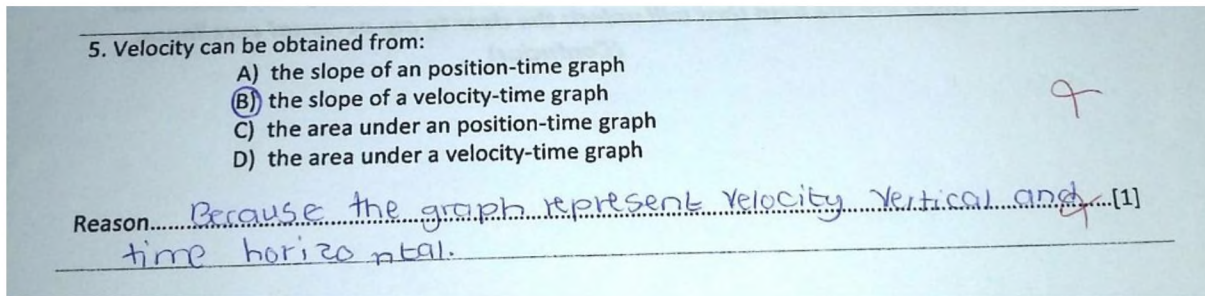 5. Velocity can be obtained from:
A) the slope of an position-time graph
B) the slope of a velocity-time graph
C) the area under an position-time graph
D) the area under a velocity-time graph
Reason.......Because the graph represent velocity vertical and....[1]
time horizontal.